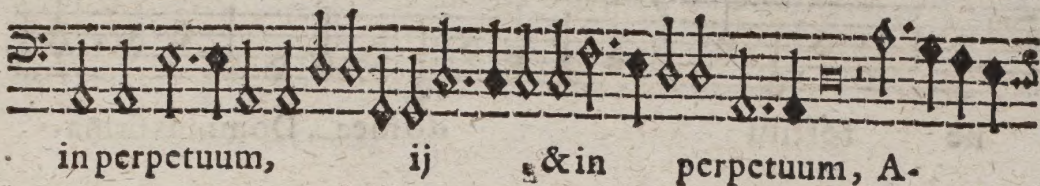 in perpetuum, ij & in perpetuum, A-